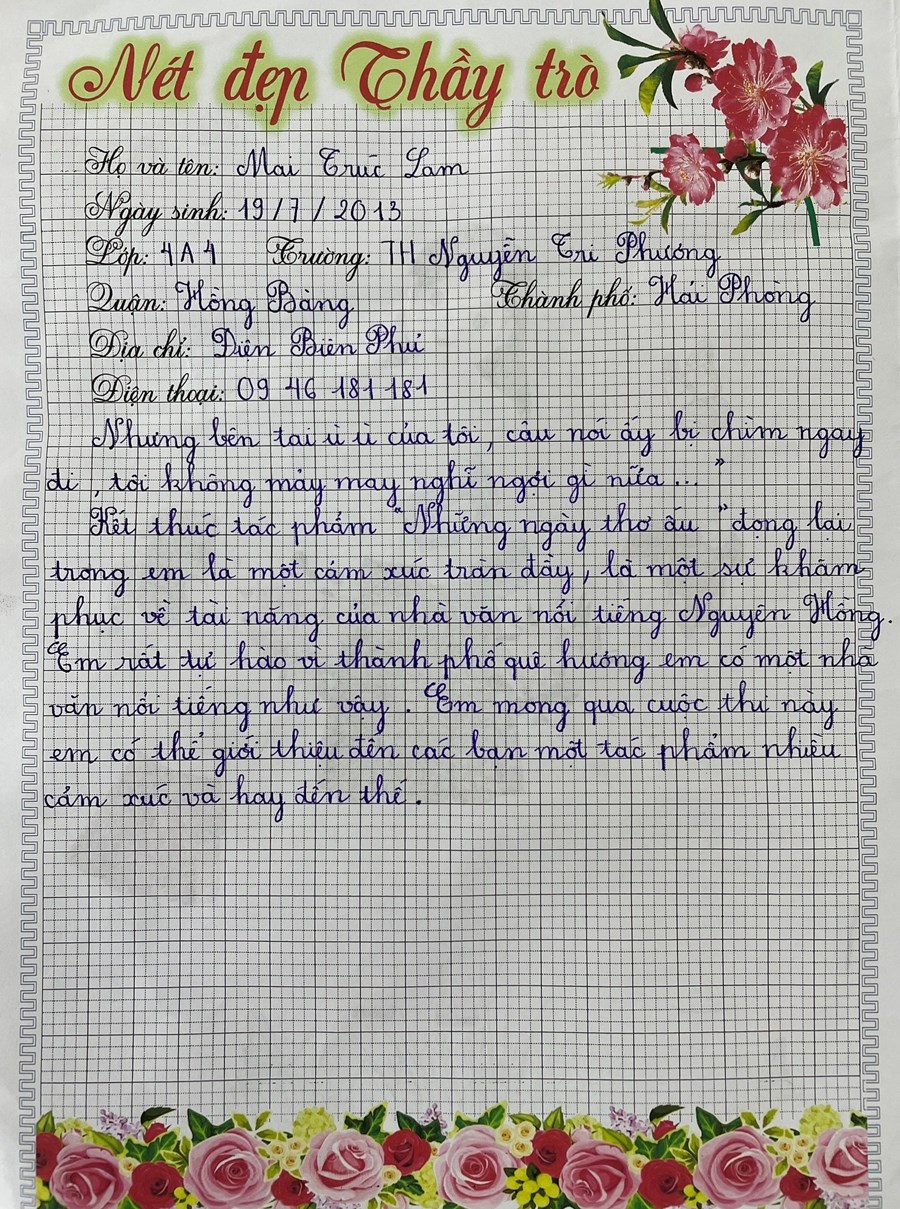 Nét đẹp Thầy trò
Họ và tên: Mai Trúc Lam
Ngày sinh: 19/7/2013
Lớp: 4A4 Trường: TH Nguyễn Tri Phương
Quận: Hồng Bàng Thành phố: Hải Phòng
Địa chỉ: Điện Biên Phủ
Điện thoại: 09 46 181 181
Nhưng bên tai ù ù của tôi, câu nói ấy bị chìm ngay
đi, tôi không mảy may nghĩ ngợi gì nữa..."
Kết thúc tác phẩm "Những ngày thơ ấu" đọng lại
trong em là một cảm xúc tràn đầy, là một sự khâm
phục về tài năng của nhà văn nổi tiếng Nguyên Hồng.
Em rất tự hào vì thành phố quê hương em có một nhà
văn nổi tiếng như vậy. Em mong qua cuộc thi này
em có thể giới thiệu đến các bạn một tác phẩm nhiều
cảm xúc và hay đến thế.